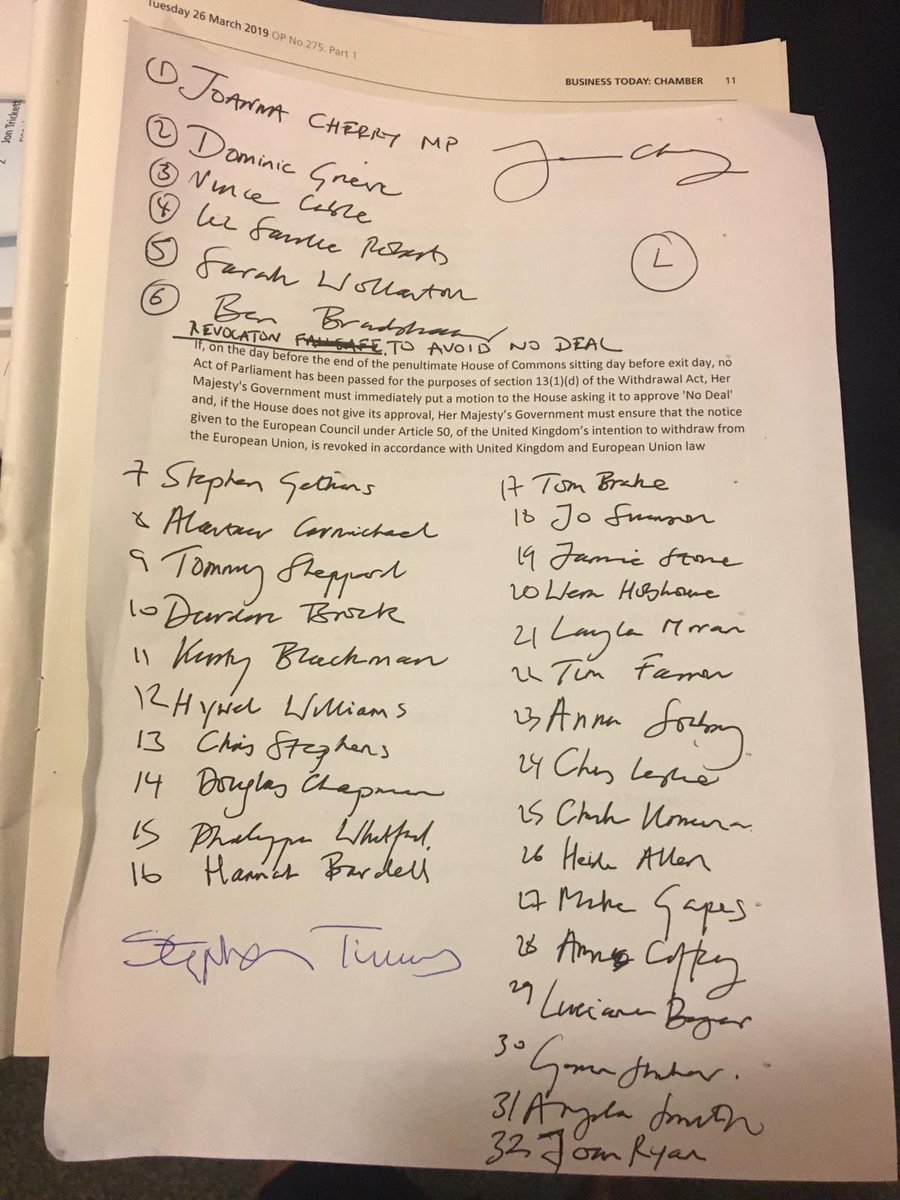 Tuesday 26 March 2019 OP No.275: Part 1
BUSINESS TODAY: CHAMBER 11
Jon Trickett
2
1 JOANNA CHERRY MP
2 Dominic Grieve
3 Vince Cable
4 Liz Saville Roberts
5 Sarah Wollaston
6 Ben Bradshaw
L
REVOCATON FAILSAFE. TO AVOID NO DEAL
If, on the day before the end of the penultimate House of Commons sitting day before exit day, no
Act of Parliament has been passed for the purposes of section 13(1)(d) of the Withdrawal Act, Her
Majesty's Government must immediately put a motion to the House asking it to approve 'No Deal'
and, if the House does not give its approval, Her Majesty's Government must ensure that the notice
given to the European Council under Article 50, of the United Kingdom's intention to withdraw from
the European Union, is revoked in accordance with United Kingdom and European Union law
7 Stephen Gethins
8 Alistair Carmichael
9 Tommy Sheppard
10 Deidre Brock
11 Kirsty Blackman
12 Hywel Williams
13 Chris Stephens
14 Douglas Chapman
15 Philippa Whitford.
16 Hannah Bardell
Stephen Timms
17 Tom Brake
18 Jo Swinson
19 Jamie Stone
20 Wera Hobhouse
21 Layla Moran
22 Tim Farron
23 Anna Soubry
24 Chris Leslie
25 Chuka Umunna
26 Heidi Allen
27 Mike Gapes
28 Ann Coffey
29 Luciana Berger
30 Gavin Shuker.
31 Angela Smith
32 Joan Ryan